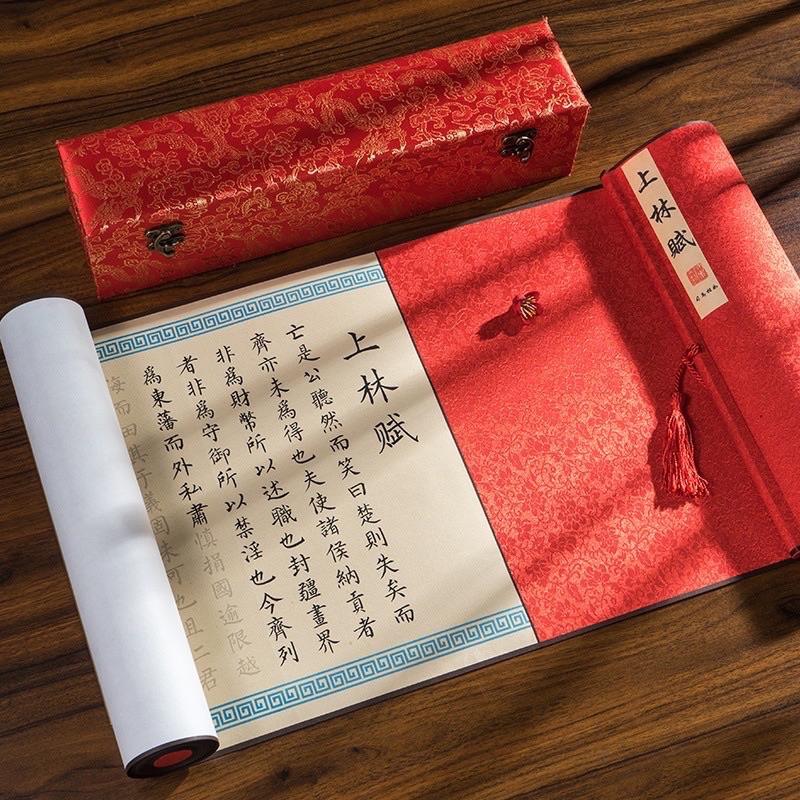 上林賦
司馬相如
上林赋
亡是公聽然而笑曰楚則失矣而
齊亦未爲得也夫使諸侯納貢者
非爲財幣所以述職也封疆畫界
者非爲守御所以禁淫也今齊列
爲東藩而外私肅慎捐國逾限越
海而田其于義固未可也且二君